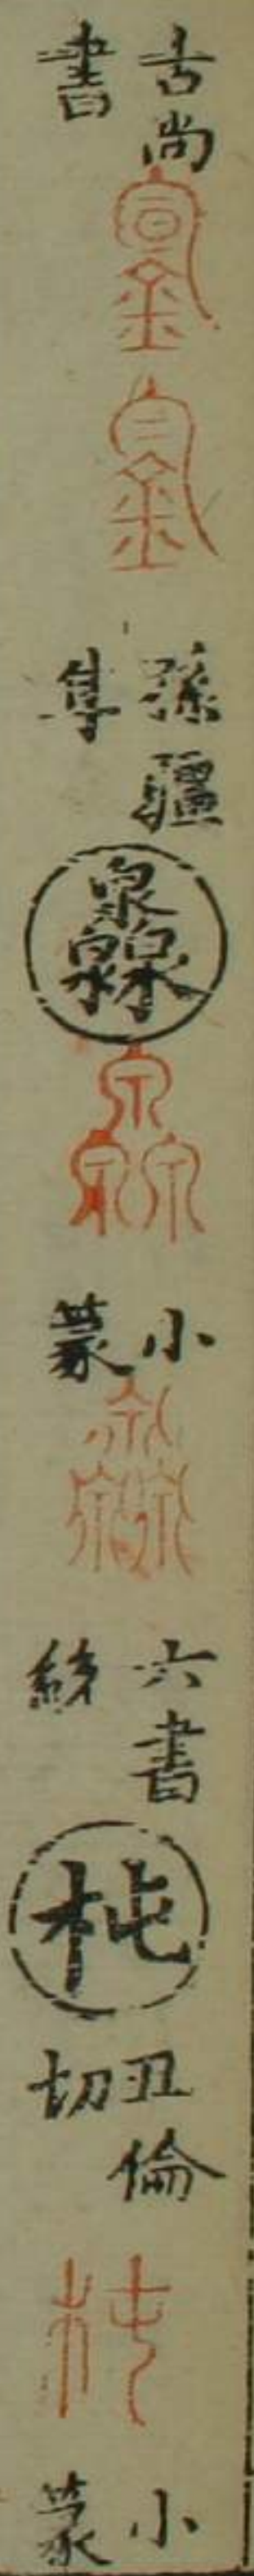 古尚書
孫彊隼
灥
小篆
六書統
杶
丑倫切
小篆